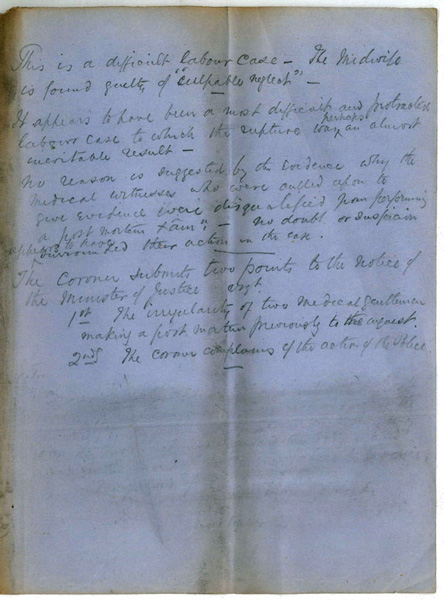 This is a difficult labour case - The Midwife
is found guilty of "culpable neglect" -
It appears to have been a most difficult and protracted
labour case to which the rupture was perhaps an almost
inevitable result -
No reason is suggested by the Evidence why the
medical witnesses who were called upon to
give Evidence were disqualified from performing
a post mortem Exam - no doubt or suspicion
appears to have surrounded their action in the case.
The Coroner submits two points to the notice of
the Minister of Justice
1st The irregularity of two medical gentlemen
making a post mortem previously to the inquest.
2ndly The coroner complains of the action of the Police